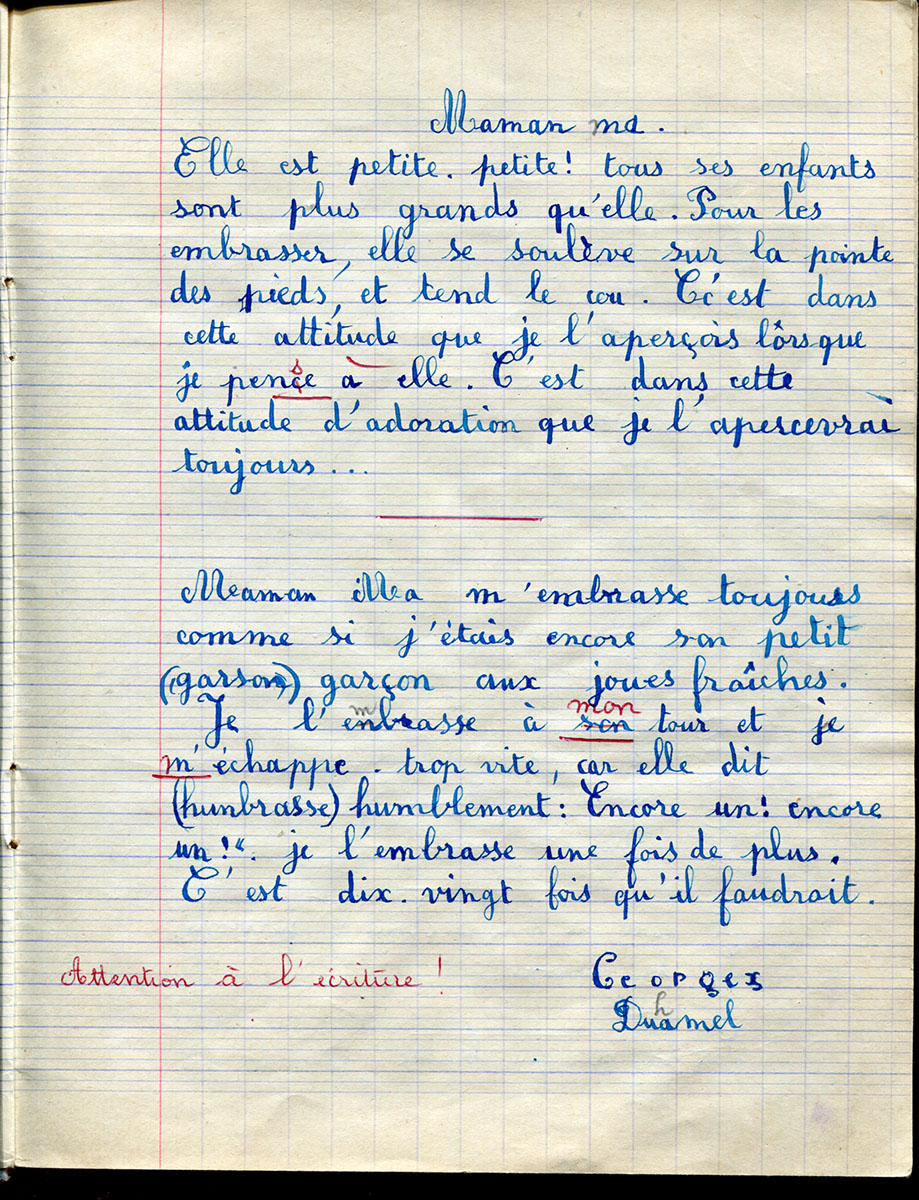 Maman ma.
Elle est petite. petite! tous ses enfants
sont plus grands qu'elle. Pour les
embrasser, elle se soulève sur la pointe
des pieds, et tend le cou. C'est dans
cette attitude que je l'aperçois lorsque
s
je pence à elle. C'est dans cette
attitude d'adoration que je l'apercevrai
toujours...
Meaman Mea m'embrasse toujours
comme si j'étais encore son petit
(garson) garçon aux joues fraîches.
m mon
Je l'enbrasse à son tour et je
m'échappe. trop vite, car elle dit
(hunbrasse) humblement: Encore un! encore
un!". je l'embrasse une fois de plus.
C'est dix. vingt fois qu'il faudrait.
Attention à l'écriture! Georges
h
Duamel